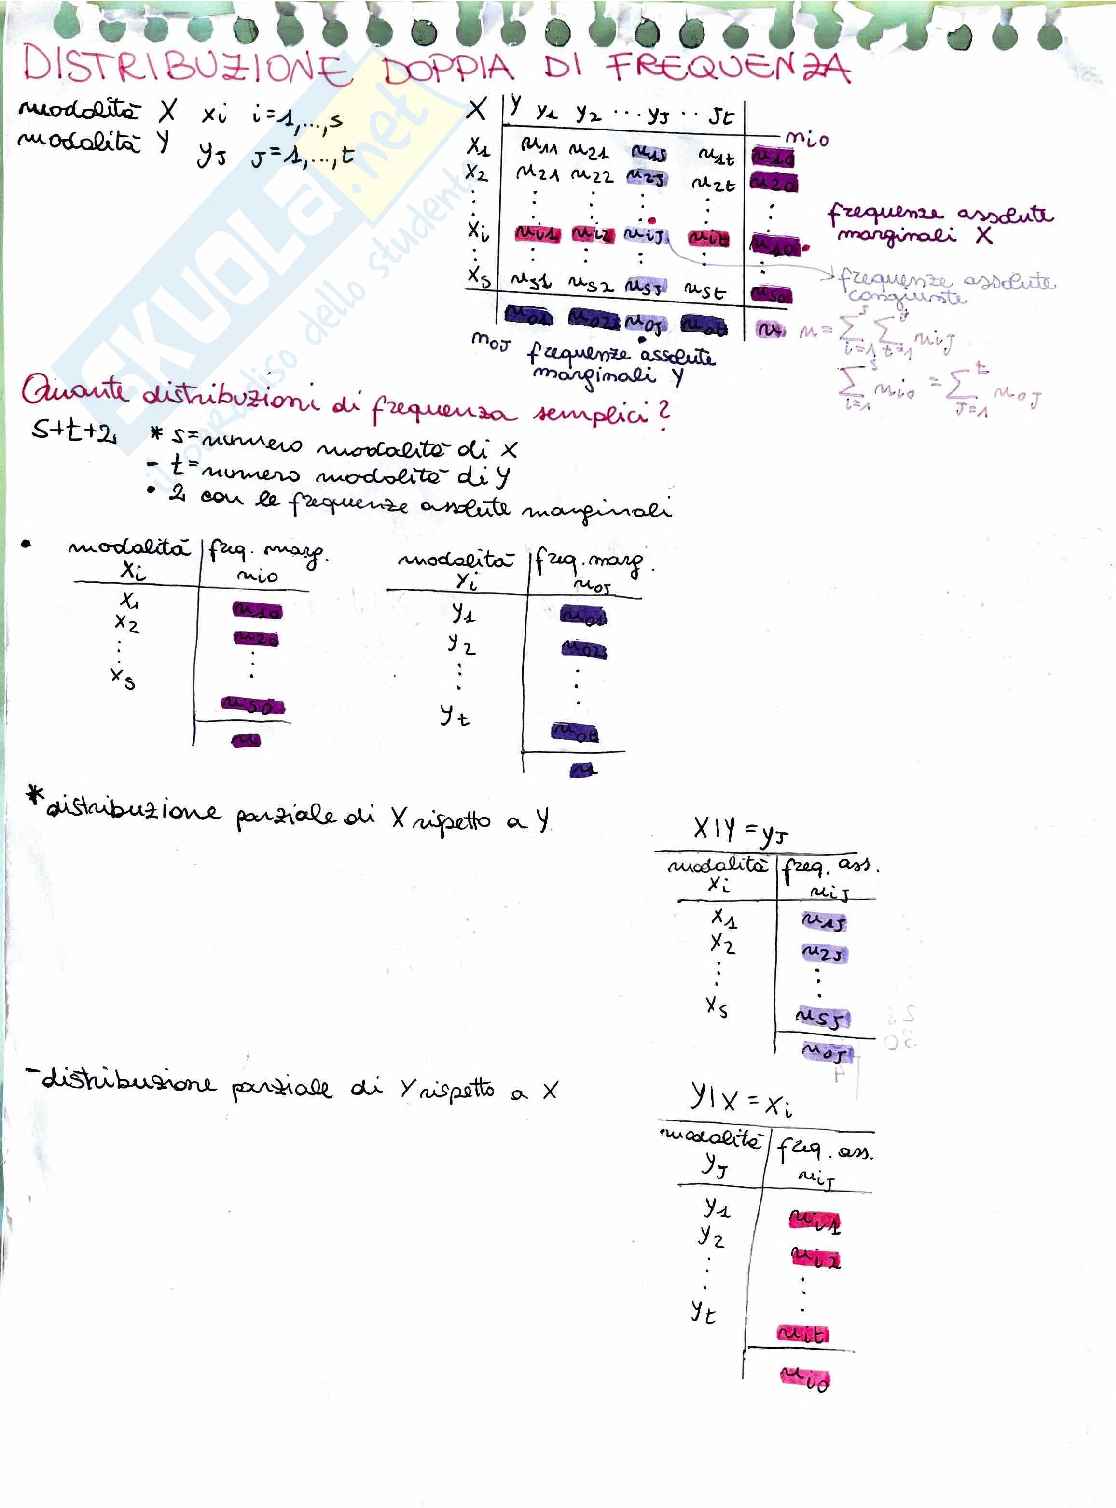 DISTRIBUZIONE DOPPIA DI FREQUENZA
modalità X xi i=1,...,s
modalità Y yJ J=1,...,t
X Y y1 y2 ... yJ .. Jt
nio
x1 n11 n21 n1J n1t n10
x2 n21 n22 n2J n2t n20
xi ni1 ni2 niJ nit nio
xs ns1 ns2 nsJ nst nso
no1 no2 noJ not n
frequenze assolute
marginali X
frequenze assolute
congiunte
n = Σ i=1 s Σ t=1 niJ
Σ i=1 s nio = Σ J=1 t noJ
noJ frequenze assolute
marginali Y
Quante distribuzioni di frequenza semplici?
s+t+2, * s=numero modalità di X
- t=numero modalità di Y
• 2 con le frequenze assolute marginali
• modalità xi freq. marg. nio
x1 n10
x2 n20
xs nso
n
modalità Yi freq. marg. noJ
y1 no1
y2 no2
yt not
n
* distribuzione parziale di X rispetto a Y
X|Y = yJ
modalità xi freq. ass. niJ
x1 n1J
x2 n2J
xs nsJ
noJ
- distribuzione parziale di Y rispetto a X
Y|X = xi
modalità yJ freq. ass. niJ
y1 ni1
y2 ni2
yt nit
nio
SKUOLA.net
il paradiso dello studente